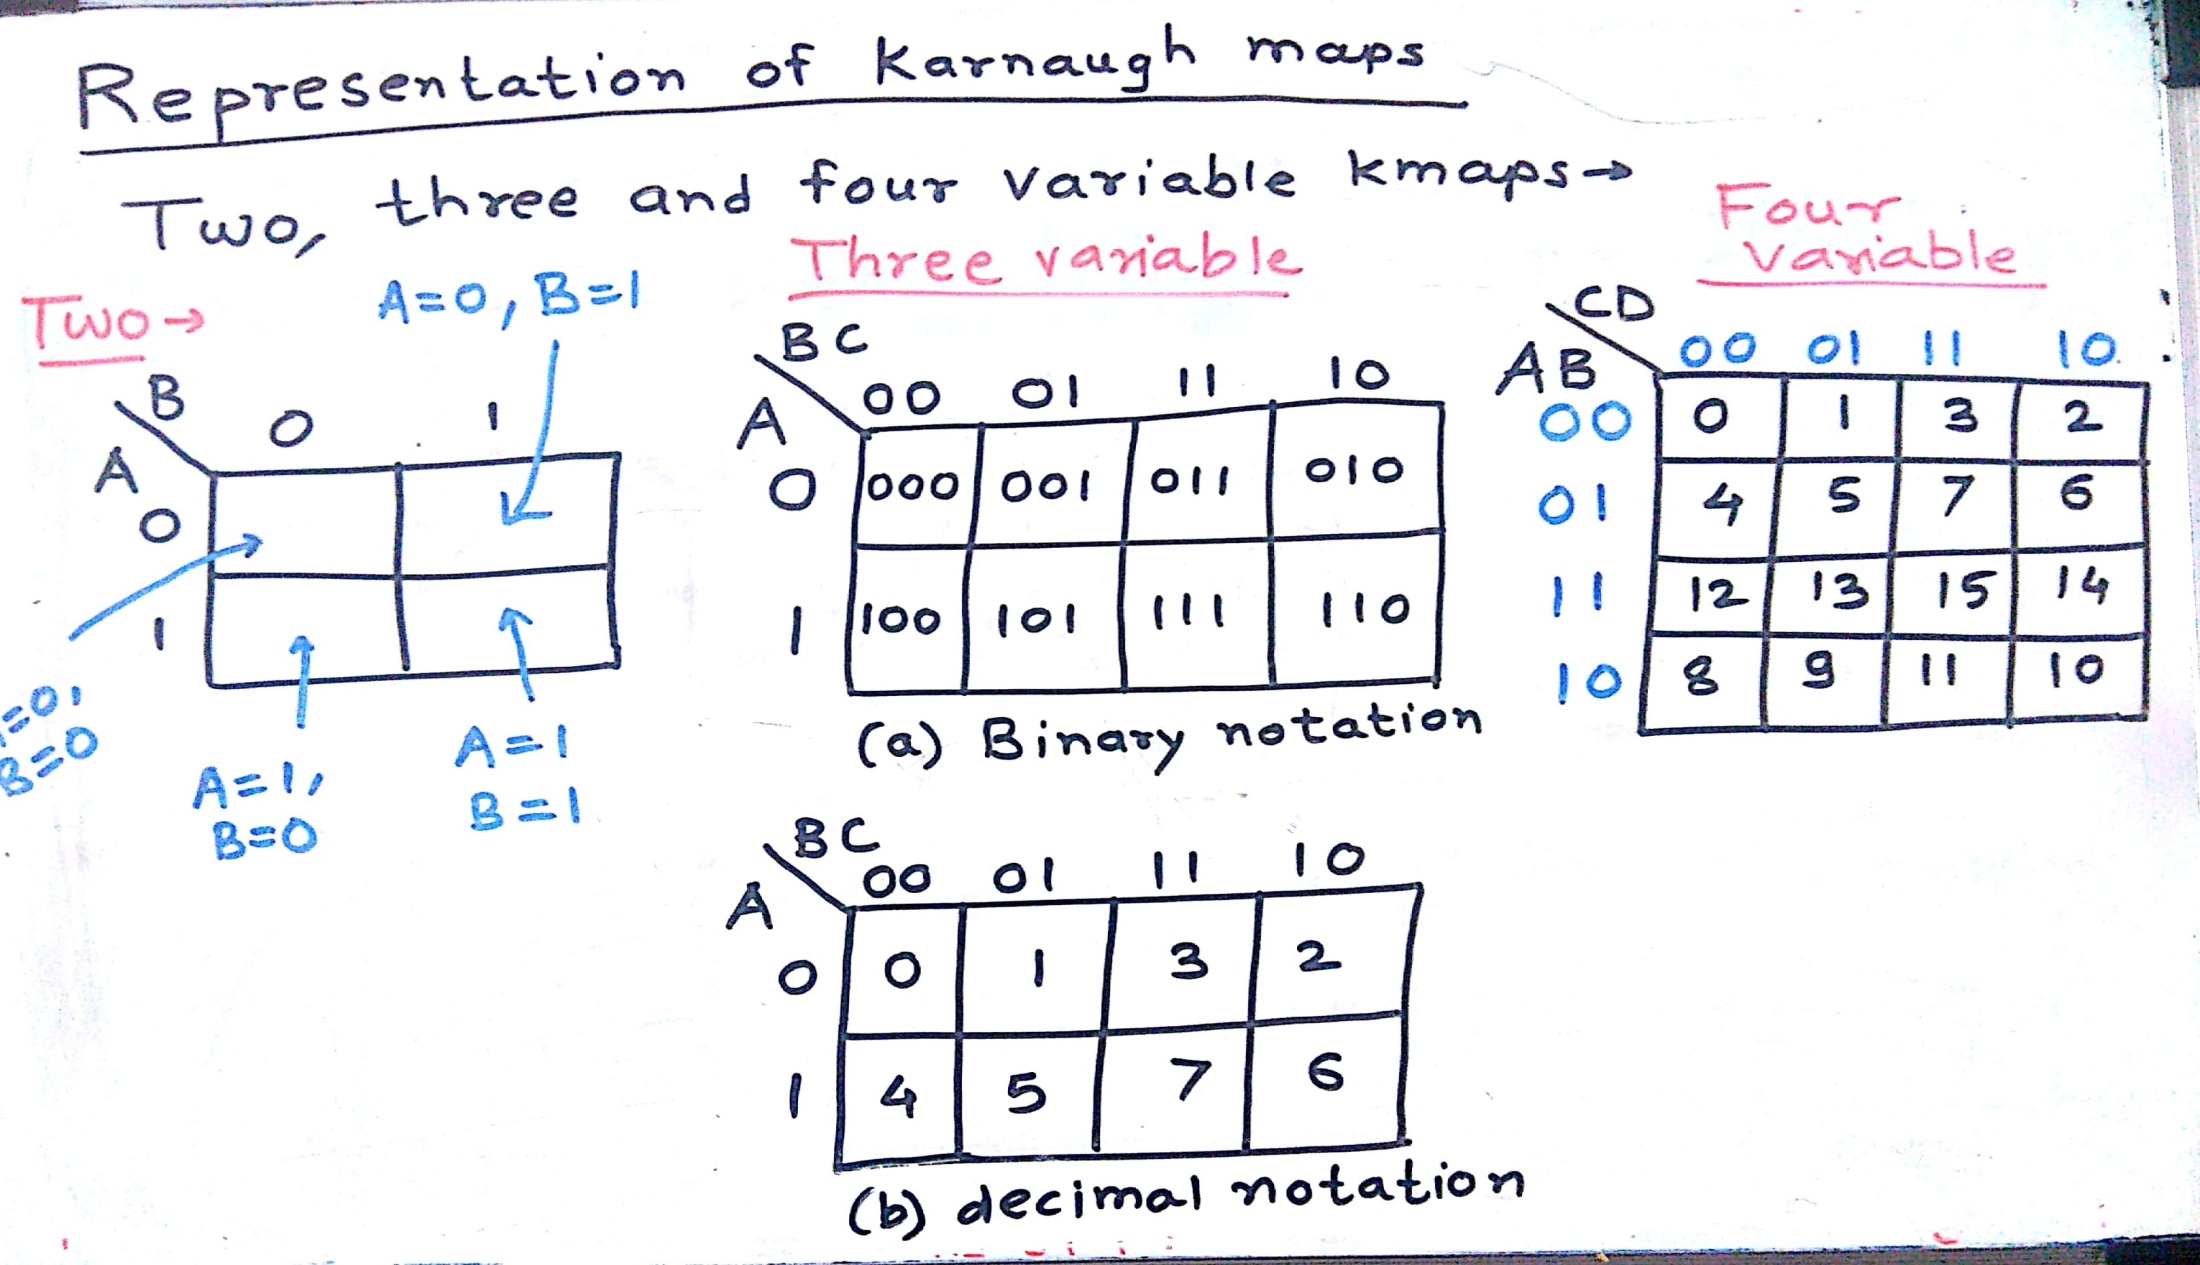 Representation of Karnaugh maps
Two, three and four variable kmaps→
Two→
A=0, B=1
B
0 1
A
0
1
=0,
B=0
A=1,
B=0
A=1
B=1
Three variable
BC
A
00 01 11 10
0 000 001 011 010
1 100 101 111 110
(a) Binary notation
BC
A
00 01 11 10
0 0 1 3 2
1 4 5 7 6
(b) decimal notation
Four
variable
CD
AB
00 01 11 10
00 0 1 3 2
01 4 5 7 6
11 12 13 15 14
10 8 9 11 10